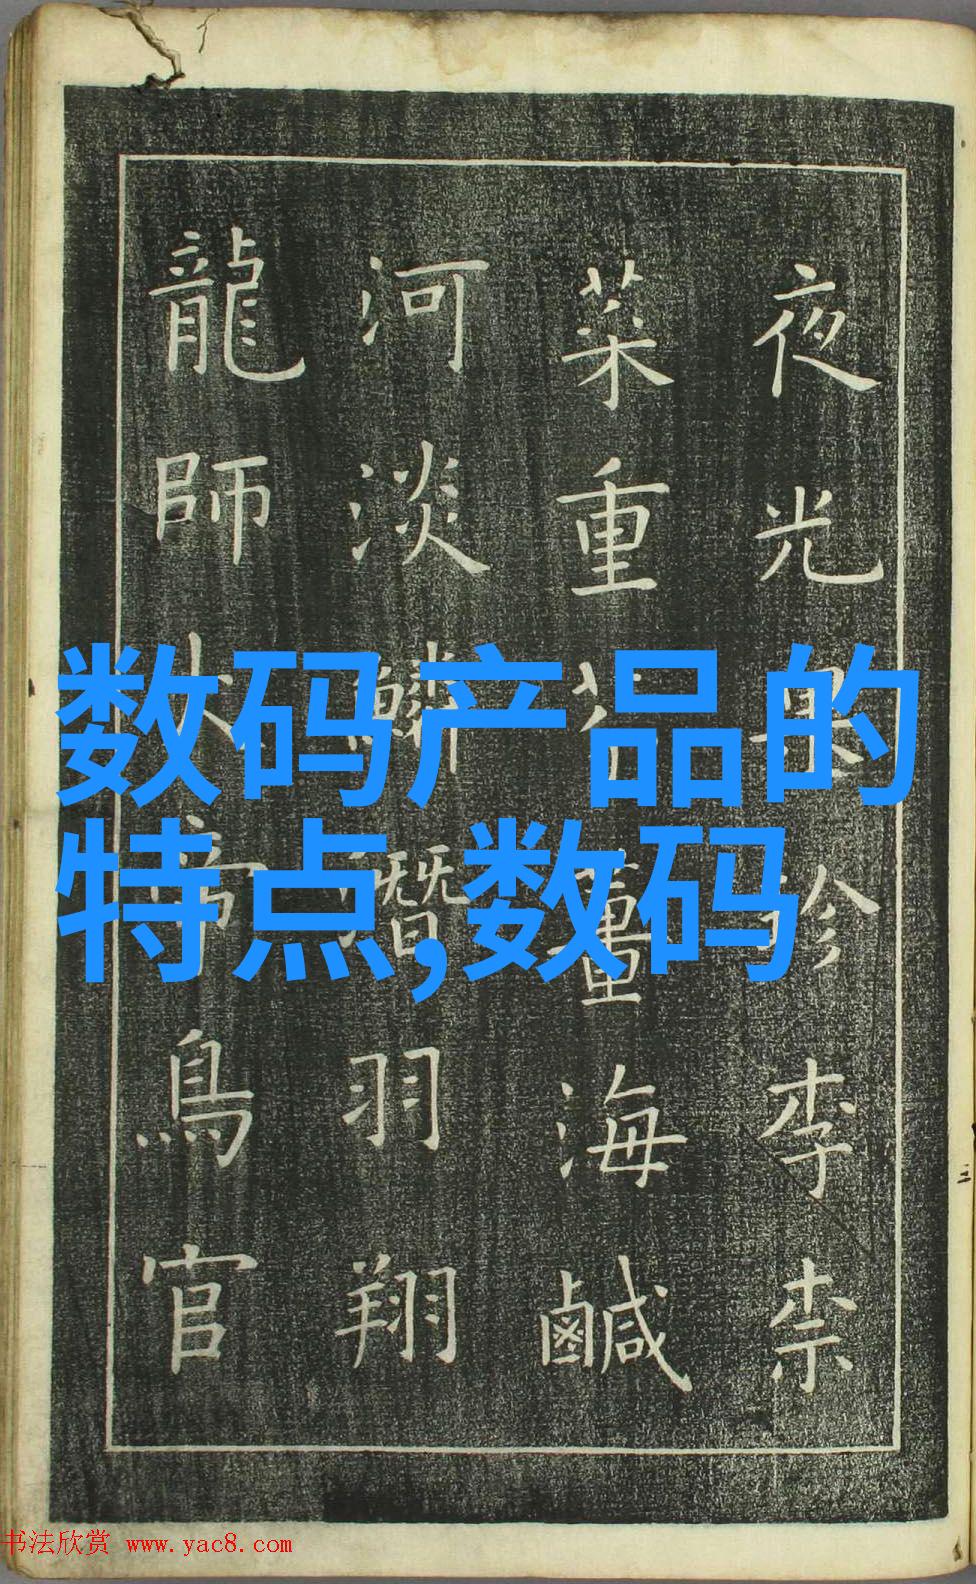 夜光果珍李柰
菜重芥薑海鹹
河淡鱗潛羽翔
龍師火帝鳥官
数码产品的
特点,数码
书法欣赏 www.yac8.com